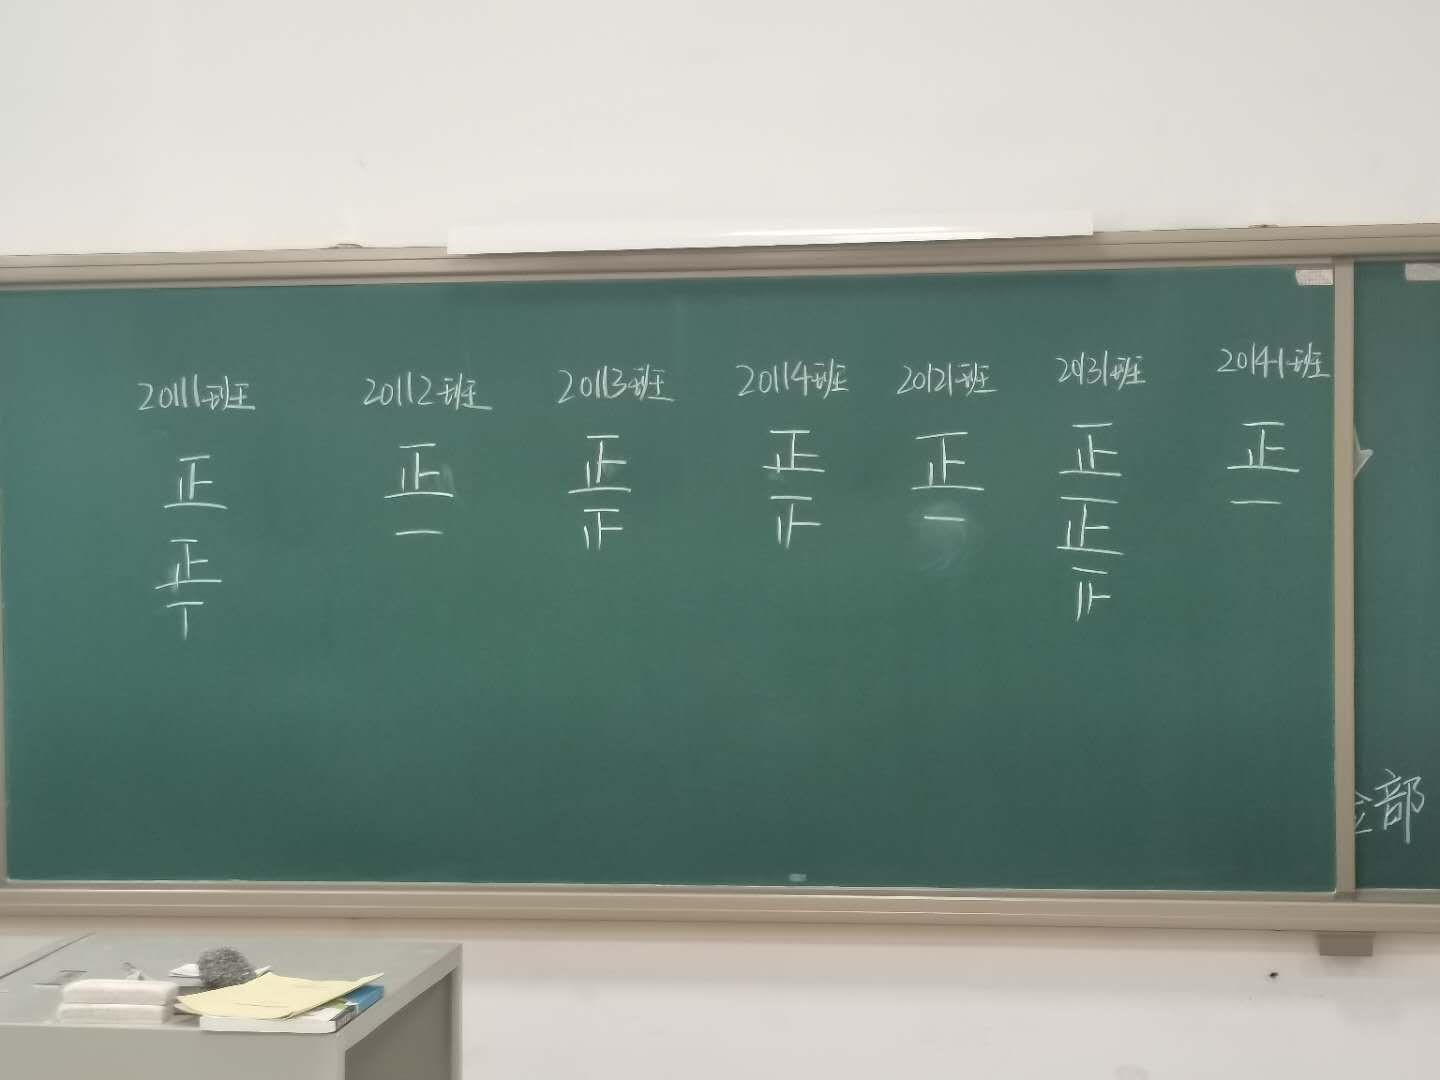 20111班 20112班 20113班 20114班 20121班 20131班 20141班
正 正 正 正 正 正 正
正 一 止 止 一 正 一
丅 止
部